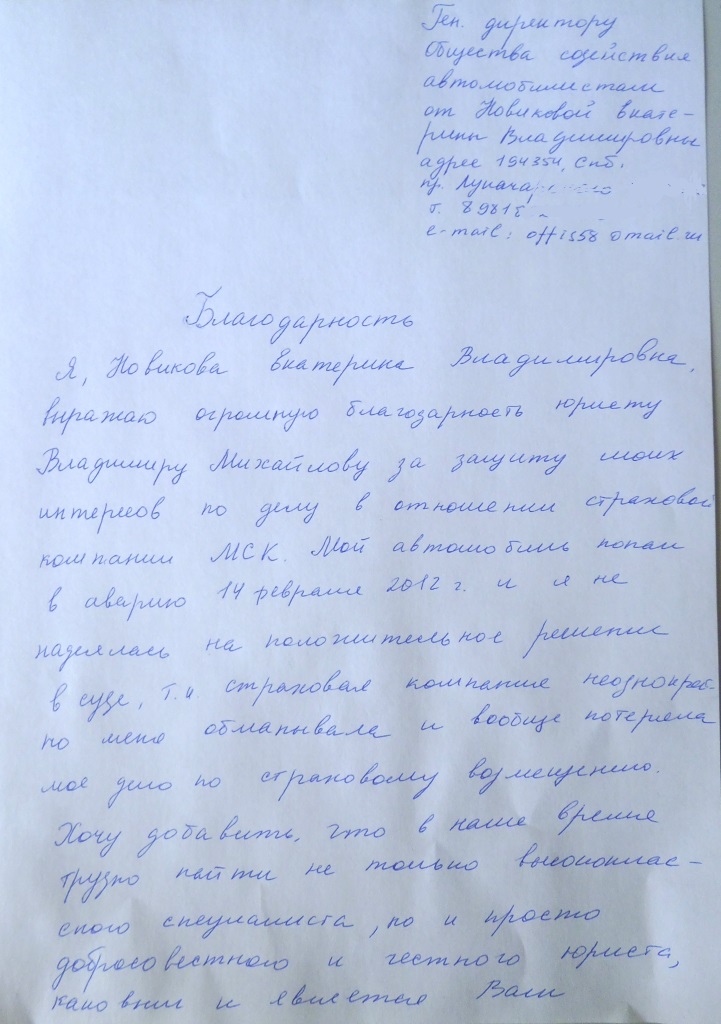 Ген. директору
Общества содействия
автомобилистам
от Новиковой Екате-
рины Владимировны
адрес 194354, Спб.
пр. Луначарского
т. 8981
e-mail: offis58@mail.ru
Благодарность
Я, Новикова Екатерина Владимировна,
выражаю огромную благодарность юристу
Владимиру Михайлову за защиту моих
интересов по делу в отношении страховой
компании МСК. Мой автомобиль попал
в аварию 14 февраля 2012 г. и я не
надеялась на положительное решение
в суде, т.к. страховая компания неоднократ-
но меня обманывала и вообще потеряла
мое дело по страховому возмещению.
Хочу добавить, что в наше время
трудно найти не только высококлас-
сного специалиста, но и просто
добросовестного и честного юриста,
каковым и является Ваш